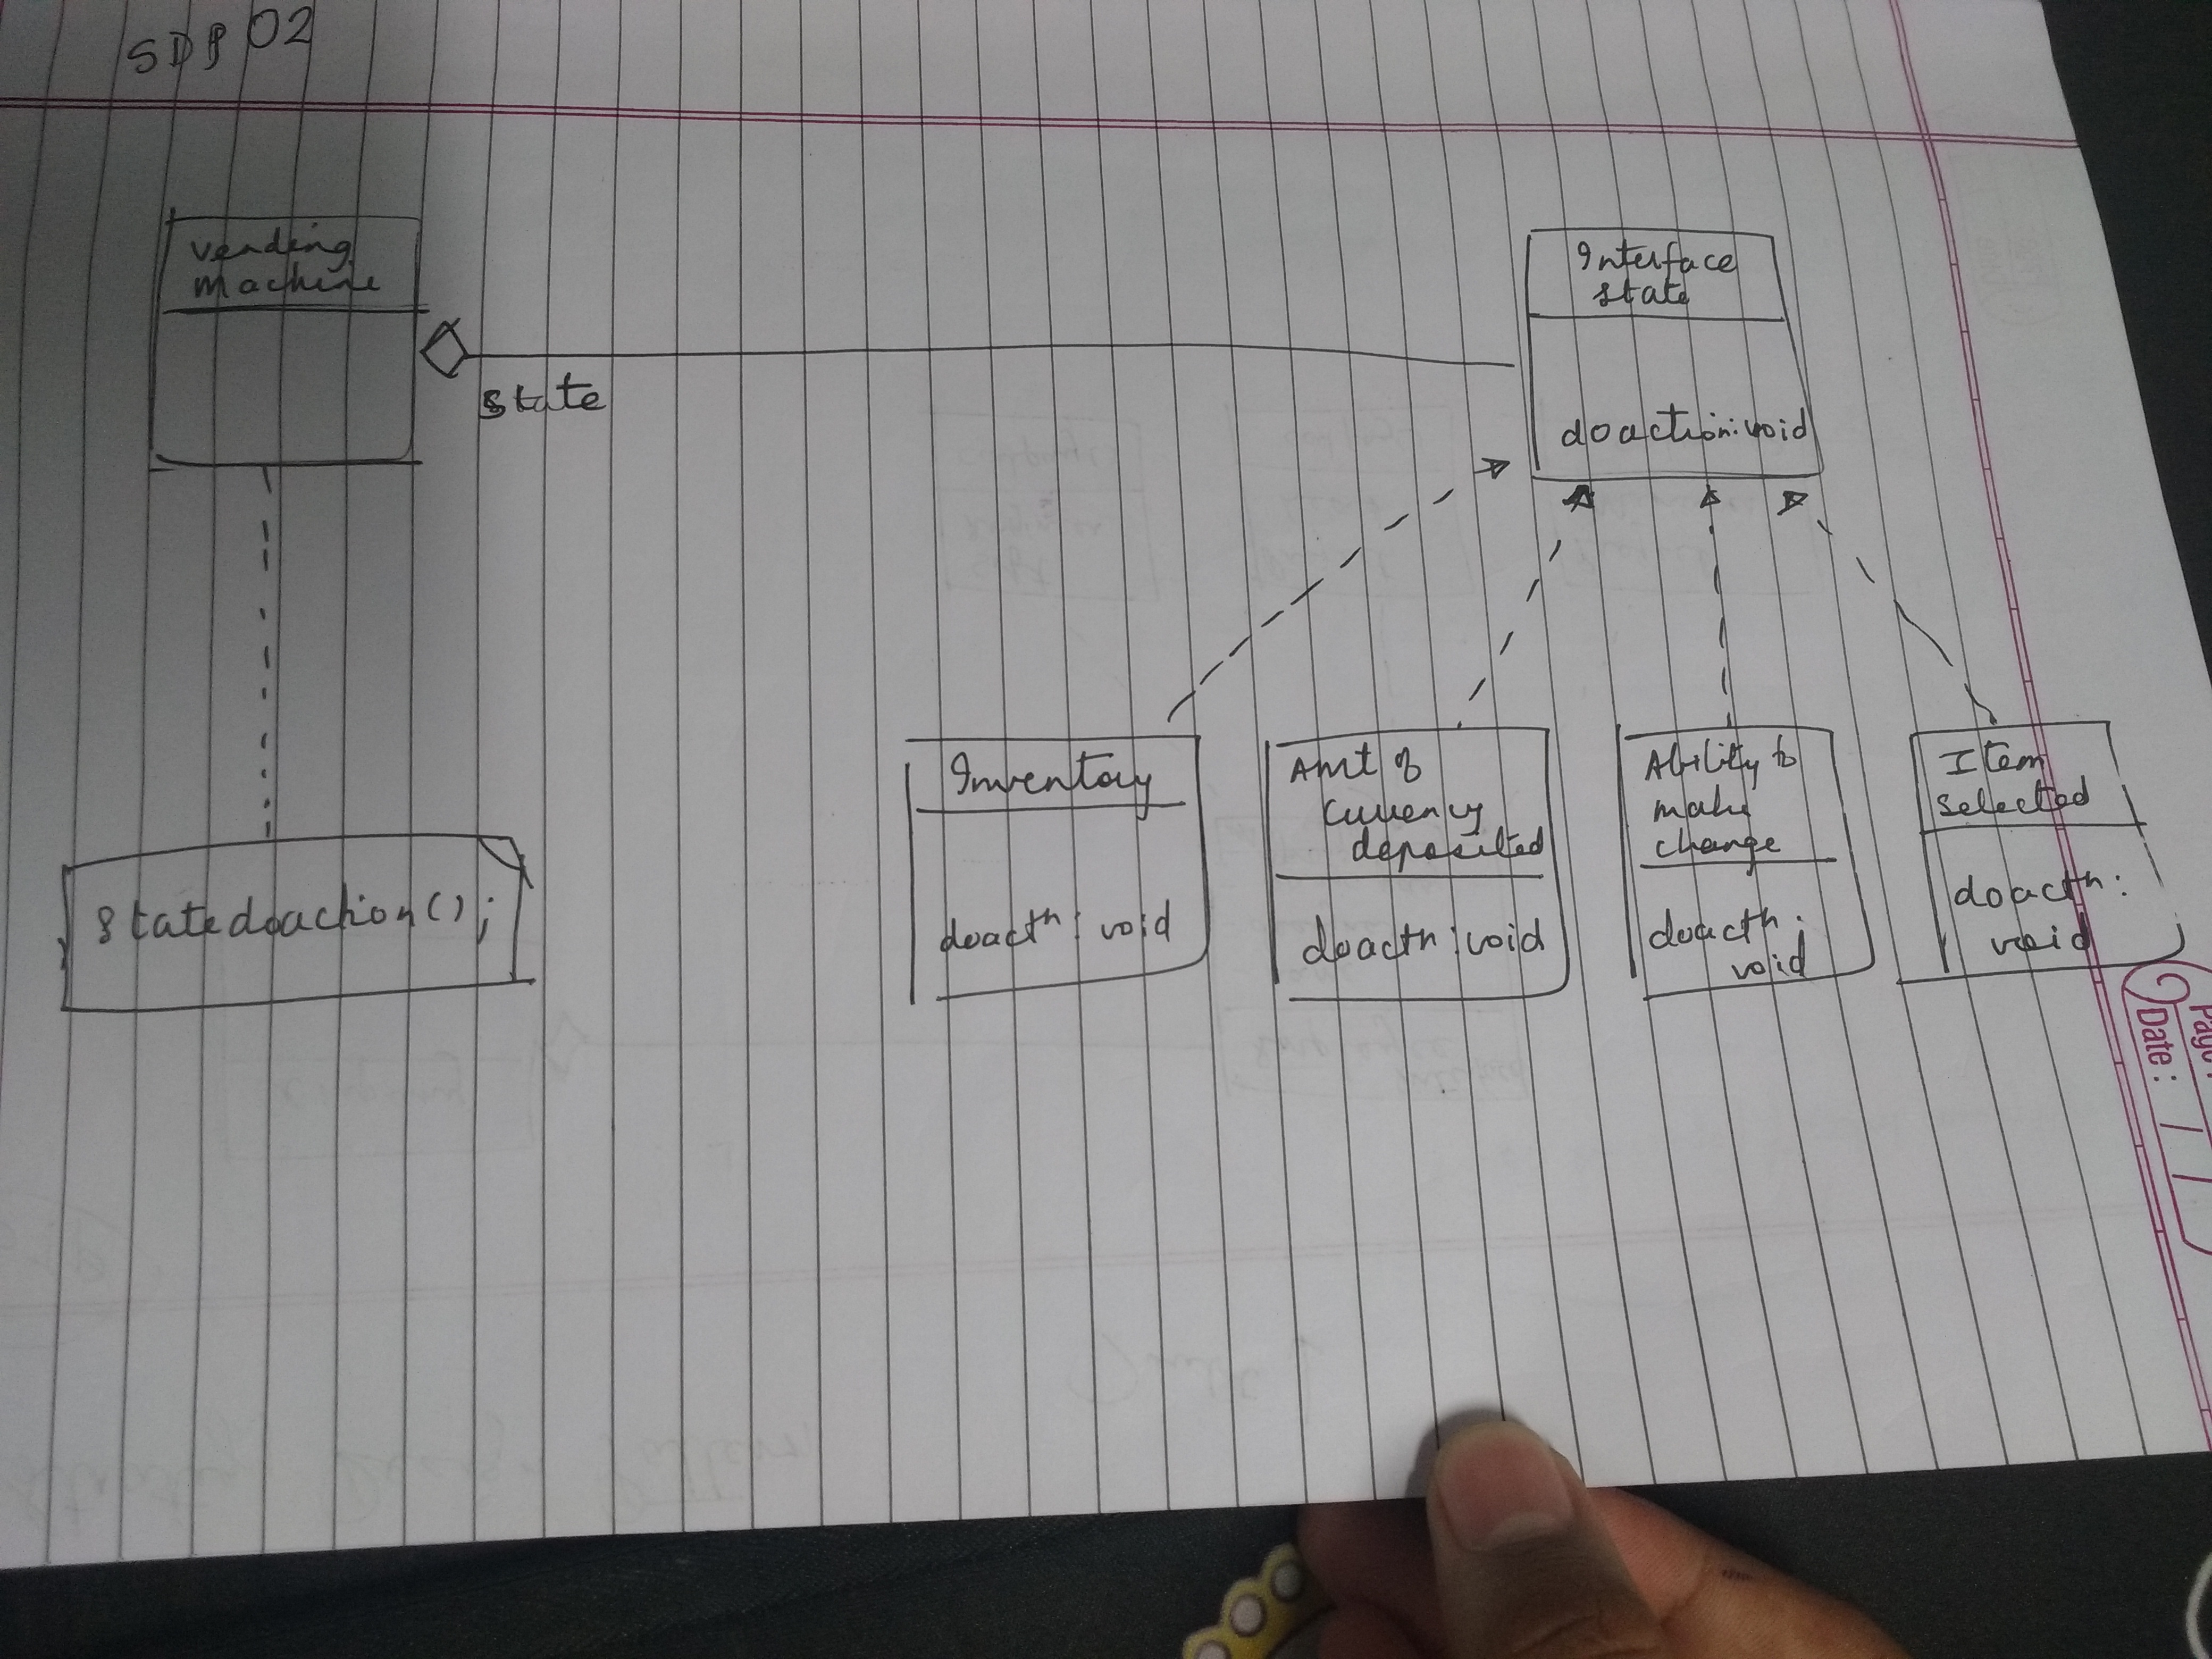 SDP 02
Vending
Machine
State
Interface
State
doaction: void
Inventory
doactn: void
Amt of
Currency
deposited
doactn: void
Ability to
make
change
doactn:
void
Item
Selected
doactn:
void
Statedoaction();
Page:
Date: / /